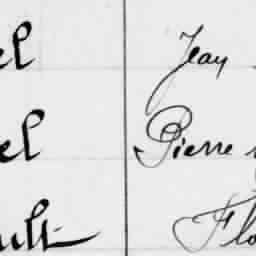 el Jean
el Pierre
ult Flo